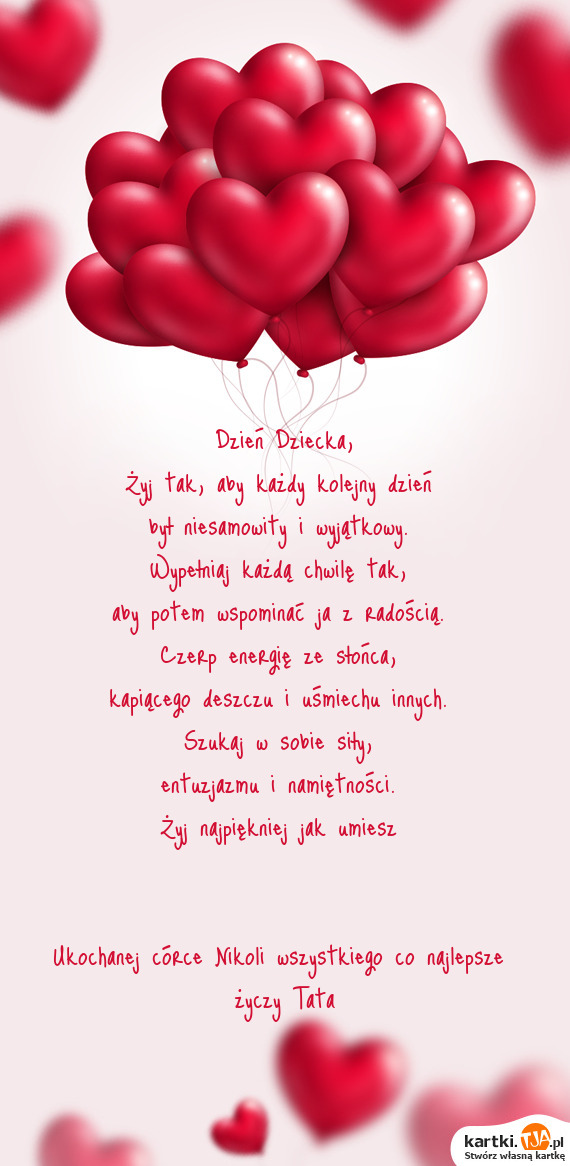 Dzień Dziecka,
Żyj tak, aby każdy kolejny dzień
był niesamowity i wyjątkowy.
Wypełniaj każdą chwilę tak,
aby potem wspominać ja z radością.
Czerp energię ze słońca,
kapiącego deszczu i uśmiechu innych.
Szukaj w sobie siły,
entuzjazmu i namiętności.
Żyj najpiękniej jak umiesz
Ukochanej córce Nikoli wszystkiego co najlepsze
życzy Tata
kartki.TJA.pl
Stwórz własną kartkę